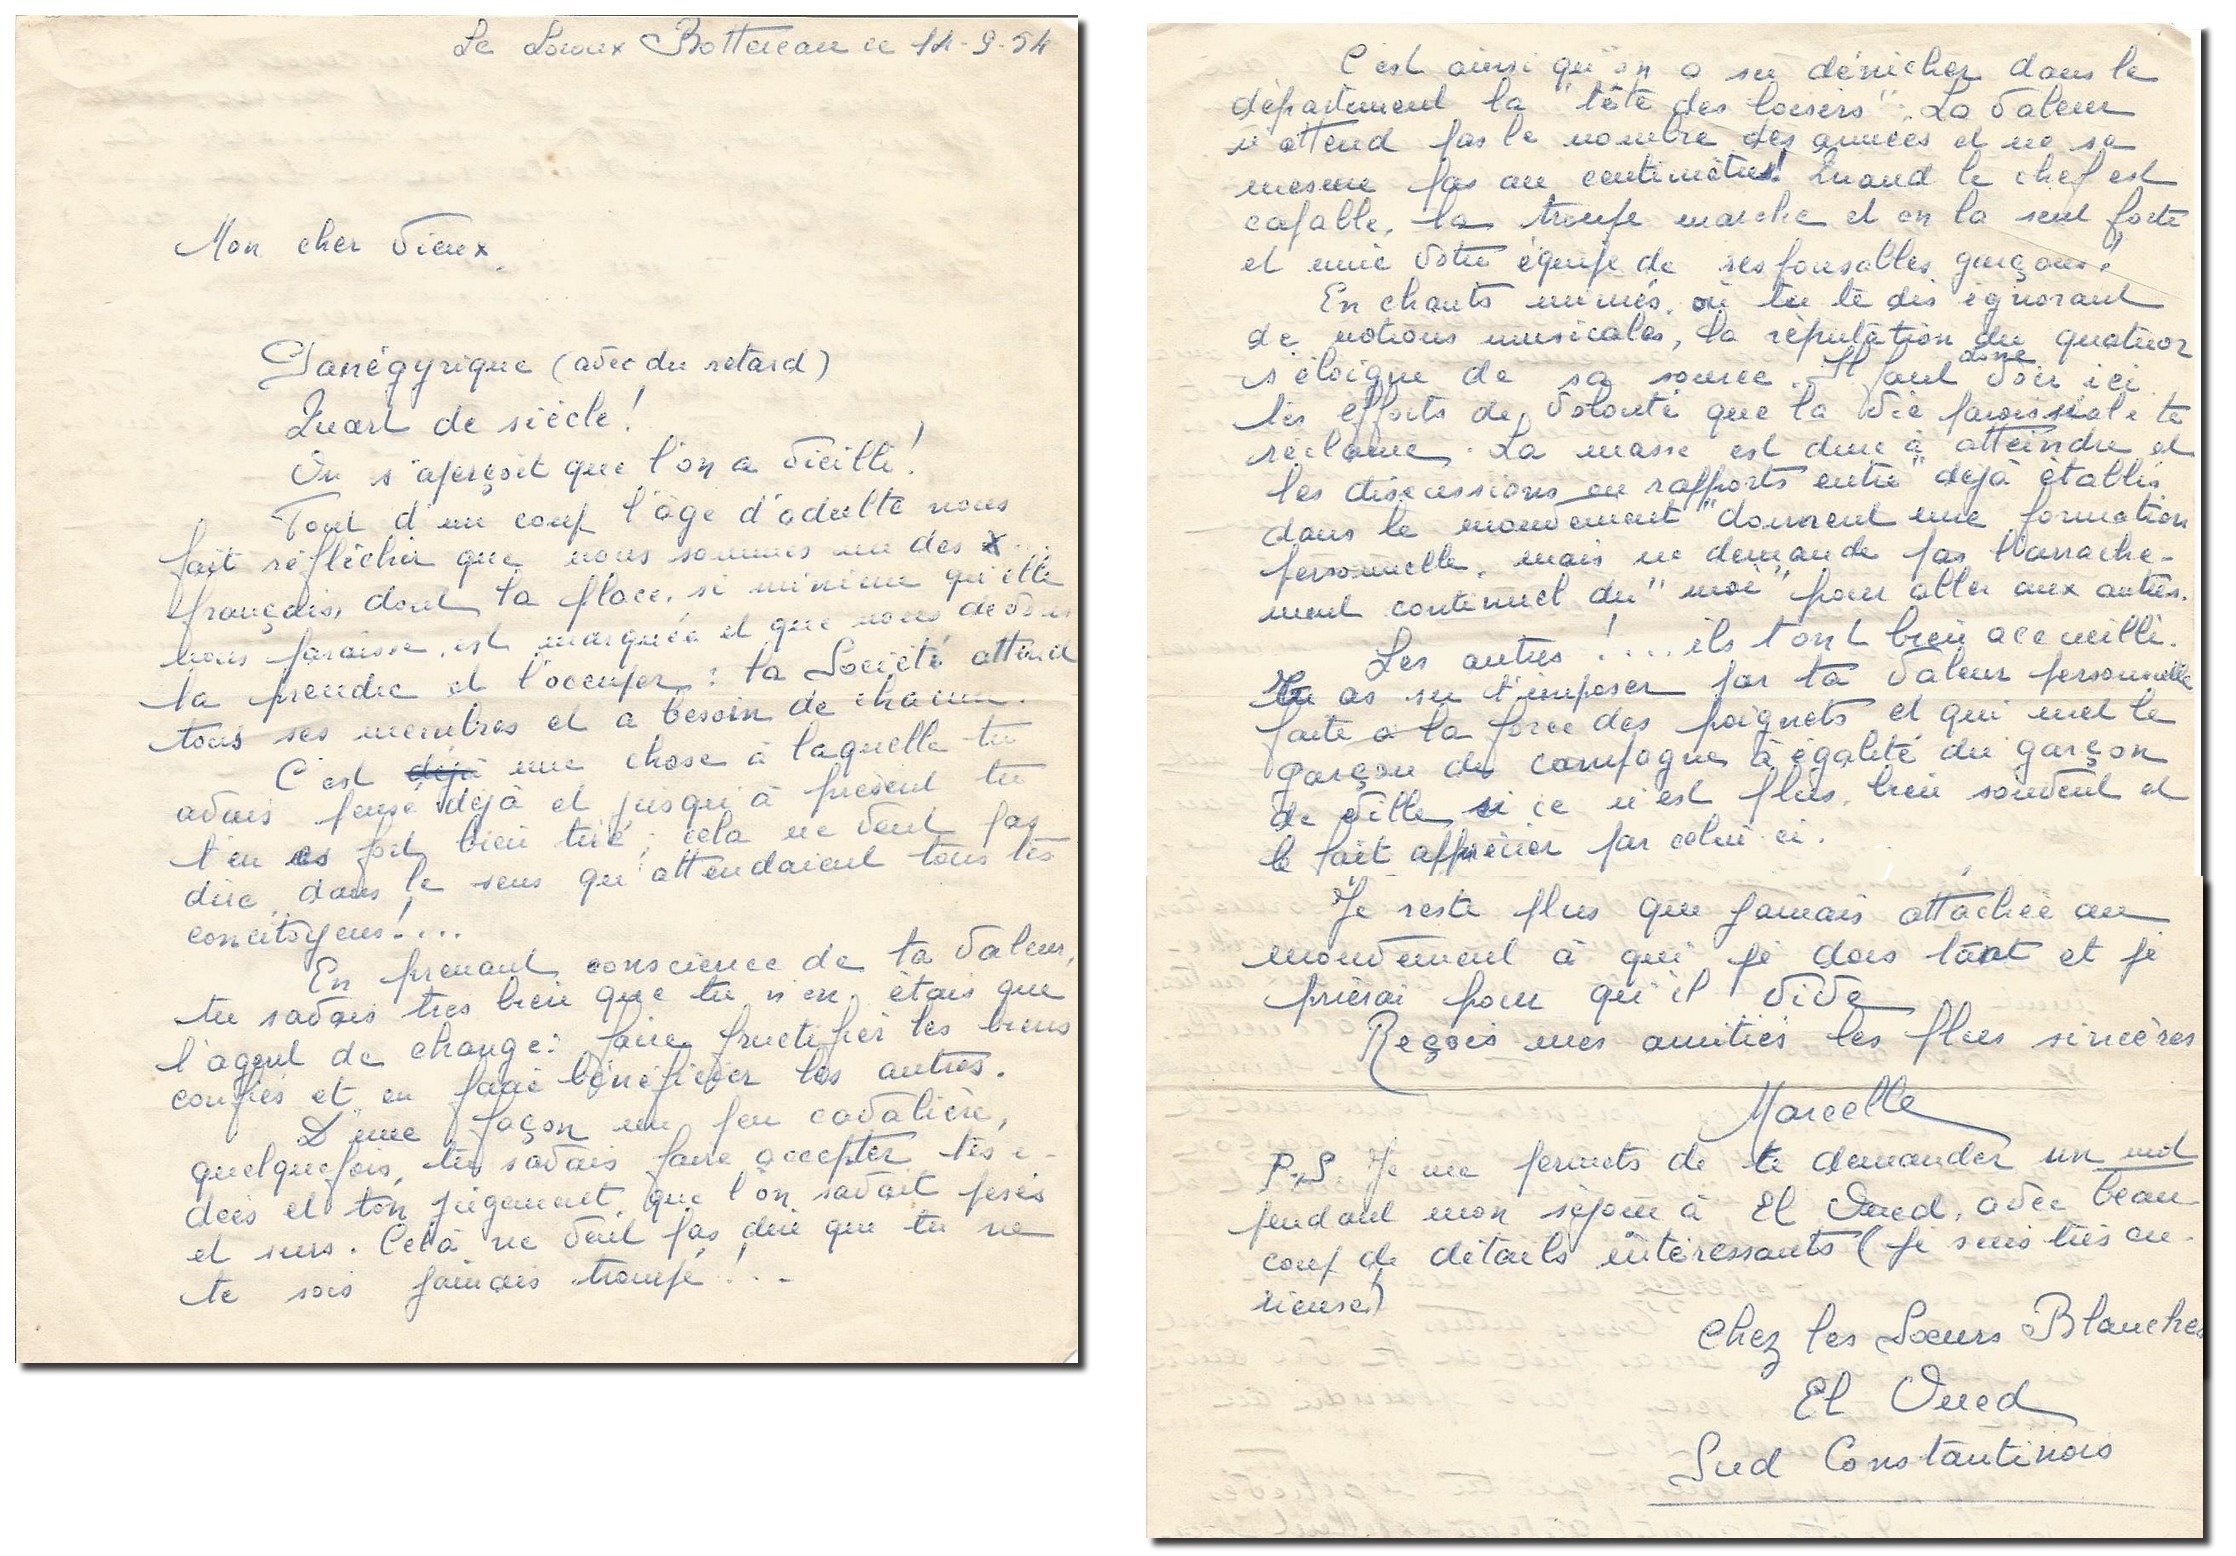 Le Loroux Bottereau ce 14-9-54
Mon cher Vieux,
Panégyrique (avec du retard)
Quart de siècle!
On s'aperçoit que l'on a vieilli!
Tout d'un coup l'âge d'adulte nous
fait réfléchir que nous sommes un des x...
français, dont la place, si minime qu'elle
nous paraisse, est marquée et que nous devons
la prendre et l'occuper : la Société attend
tous ses membres et a besoin de chacun.
C'est déjà une chose à laquelle tu
avais pensé déjà et jusqu'à présent tu
t'en es fort bien tiré; cela ne veut pas
dire, dans le sens qu'attendaient tous tes
concitoyens!....
En prenant conscience de ta valeur,
tu savais très bien que tu n'en étais que
l'agent de change: faire fructifier les biens
confiés et en faire bénéficier les autres.
D'une façon un peu cavalière,
quelquefois, tu savais faire accepter tes i-
dées et ton jugement, que l'on savait pesés
et surs. Celà ne veut pas dire que tu ne
te sois jamais trompé!...
C'est ainsi qu'on a su dénicher dans le
département la "tête des loisirs". La valeur
n'attend pas le nombre des années et ne se
mesure pas au centimètre! Quand le chef est
capable, la troupe marche et on la sent forte
et unie votre équipe de responsables garçons!
En chants mimés, où tu te dis ignorant
de notions musicales, la réputation du quatuor
s'éloigne de sa source. Il faut donc voir ici
les efforts de volonté que la vie paroissiale te
réclame. La masse est dure à atteindre et
les discussions ou rapports entre "déjà établis
dans le mouvement" donnent une formation
personnelle, mais ne demande pas l'arrache-
ment continuel du "moi" pour aller aux autres.
Les autres!.... ils t'ont bien accueilli.
Tu as su t'imposer par ta valeur personnelle
faite à la force des poignets et qui met le
garçon de campagne à égalité du garçon
de ville si ce n'est plus, bien souvent et
le fait apprécier par celui-ci.
Je reste plus que jamais attachée au
mouvement à qui je dois tant et je
prierai pour qu'il vive
Reçois mes amitiés les plus sincères
Marcelle
P.S Je me permets de te demander un mot
pendant mon séjour à El Oued, avec beau
coup de détails intéressants (je suis très cu-
rieuse)
Chez les Sœurs Blanches
El Oued
Sud Constantinois